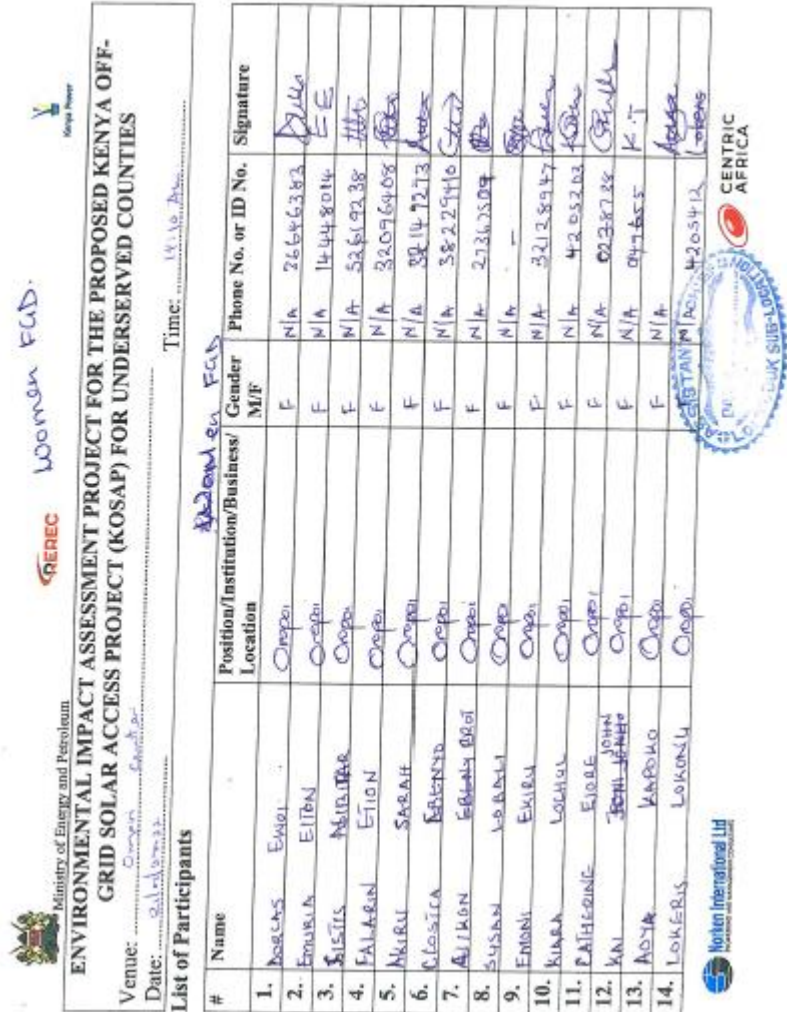 Women FGD.
Ministry of Energy and Petroleum
REREC
Kenya Power
ENVIRONMENTAL IMPACT ASSESSMENT PROJECT FOR THE PROPOSED KENYA OFF-
GRID SOLAR ACCESS PROJECT (KOSAP) FOR UNDERSERVED COUNTIES
Venue:
Date: Time:
List of Participants
Women FGD
# Name Position/Institution/Business/ Location Gender M/F Phone No. or ID No. Signature
1. DORCAS EWOI Oropoi F N/A 26646383
2. EMURIA EITON Oropoi F N/A 14448014 EE
3. Oropoi F N/A 32619238
4. FALARIN ETION Oropoi F N/A 32096408
5. AKIRU SARAH Oropoi F N/A 32147273
6. CLOSTICA Oropoi F N/A 38229410
7. Oropoi F N/A 27367509
8. SUSAN LOBALI Oropoi F N/A -
9. EMONI EKIRU Oropoi F N/A 32128947
10. KIARA LOCHUL Oropoi F N/A 4205202
11. EJORE Oropoi F N/A 0238738
12. KAI JOHN Oropoi F N/A 047655 K.T
13. AOYA KAPOKO Oropoi F N/A
14. LOKERIS LOKONU Oropoi N/A 4205412
ASSISTANT
SUB-LOCATION
Norken International Ltd
CENTRIC
AFRICA